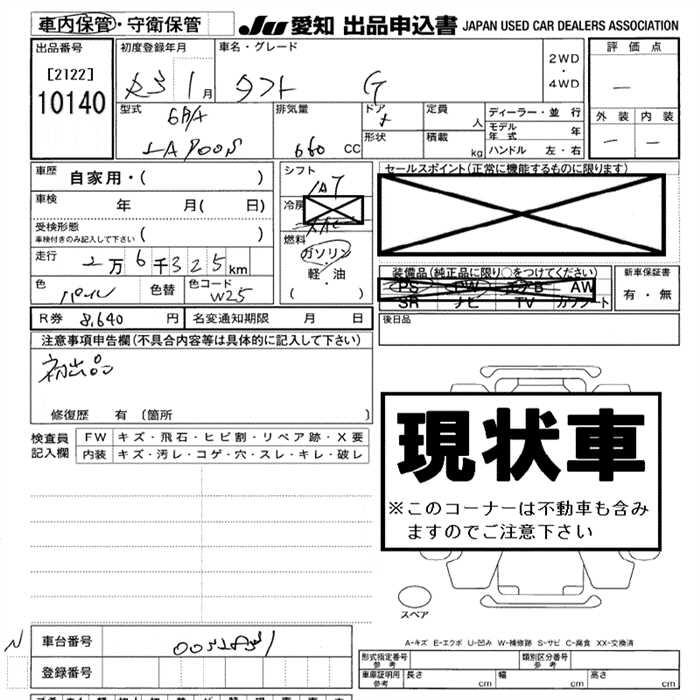 車内保管・守衛保管
JU 愛知 出品申込書 JAPAN USED CAR DEALERS ASSOCIATION
出品番号
[2122]
10140
初度登録年月
R3 1月
車名・グレード
タフト G
2WD
・
4WD
評価点
―
外装 内装
― ―
型式
6BA
LA900S
排気量
660 CC
ドア
形状
定員
人
積載
kg
ディーラー・並行
モデル年式 年
ハンドル 左・右
車歴 自家用・( )
車検 年 月( 日)
受検形態
車検付きのみ記入して下さい ( )
走行 2万6千325km
色 パール 色替 色コード W25
シフト
IAT
冷房
燃料
ガソリン
・
軽・油
( )
セールスポイント(正常に機能するものに限ります)
装備品(純正品に限り○をつけてください)
PS PW エアB AW
SR ナビ TV カワシート
新車保証書
有・無
R券 8,640 円 名変通知期限 月 日
後日品
注意事項申告欄(不具合内容等は具体的に記入して下さい)
初出品
修復歴 有〔箇所 〕
検査員記入欄
FW キズ・飛石・ヒビ割・リペア跡・X要
内装 キズ・汚レ・コゲ・穴・スレ・キレ・破レ
現状車
※このコーナーは不動車も含み
ますのでご注意下さい
スペア
A-キズ E-エクボ U-凹み W-補修跡 S-サビ C-腐食 XX-交換済
N
車台番号
登録番号
形式指定番号
参考
類別区分番号
参考
車庫証明用
参考
長さ cm 幅 cm 高さ cm